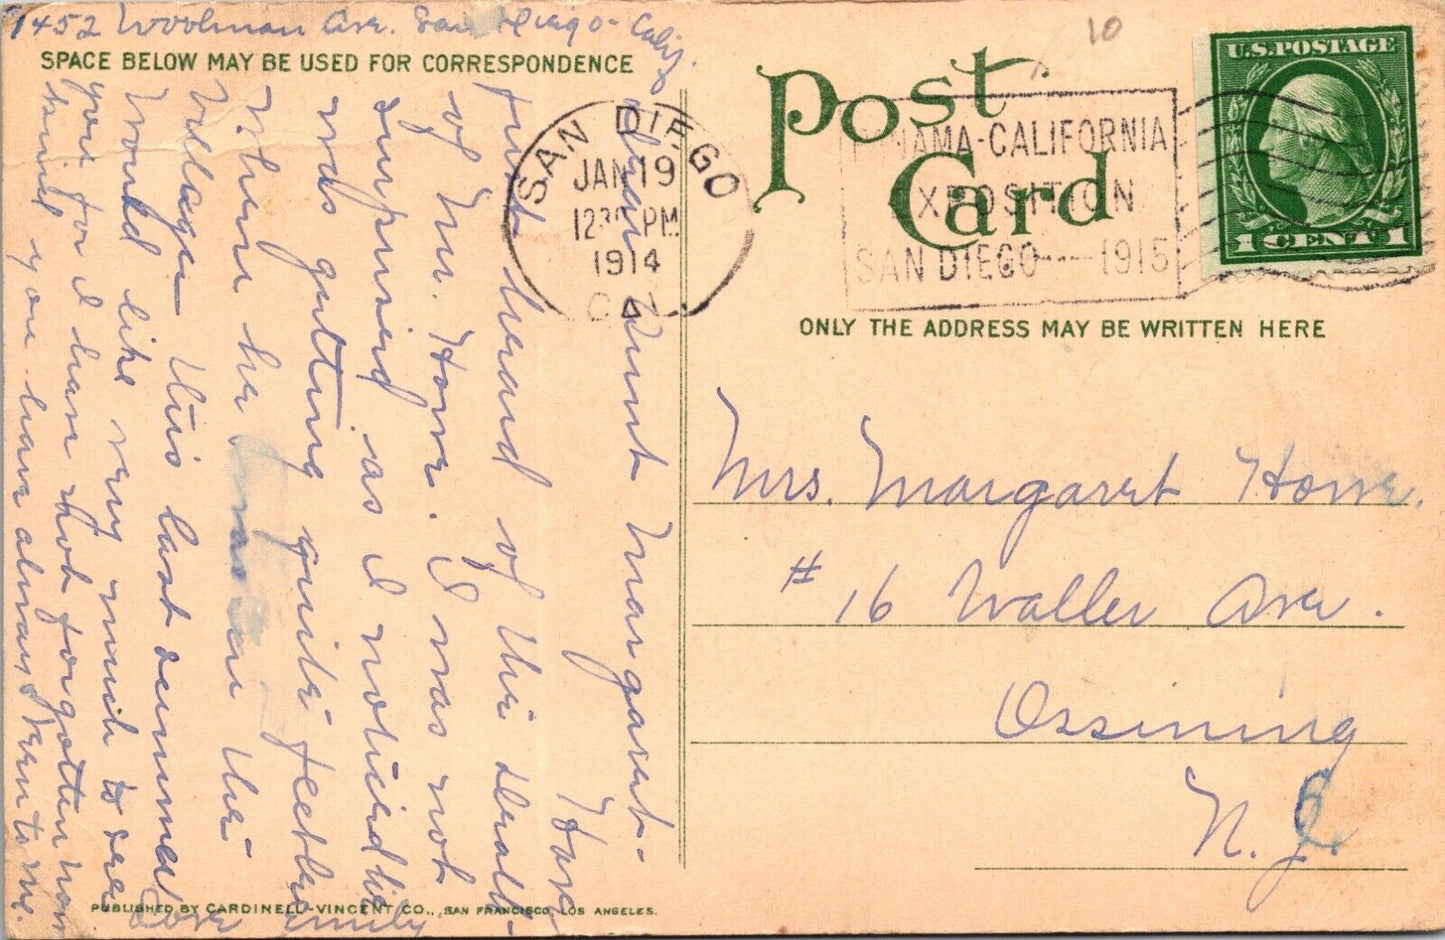 1452 Woolman Ave. San Diego - Calif.
SPACE BELOW MAY BE USED FOR CORRESPONDENCE
Dear Aunt Margaret -
Have
just heard of the death
of Mr. Howe. I was not
surprised as I noticed he
was getting quite feeble
when he was in the
Village this last summer
Would like very much to see
you for I have not forgotten how
kind you have always been to me.
Love Emily
PUBLISHED BY CARDINELL-VINCENT CO., SAN FRANCISCO, LOS ANGELES.
SAN DIEGO
JAN 19
1230 PM
1914
CAL
Post Card
10
PANAMA-CALIFORNIA
EXPOSITION
SAN DIEGO----1915
U.S.POSTAGE
1 CENT 1
ONLY THE ADDRESS MAY BE WRITTEN HERE
Mrs. Margaret Howe.
# 16 Waller Ave.
Ossining
N.